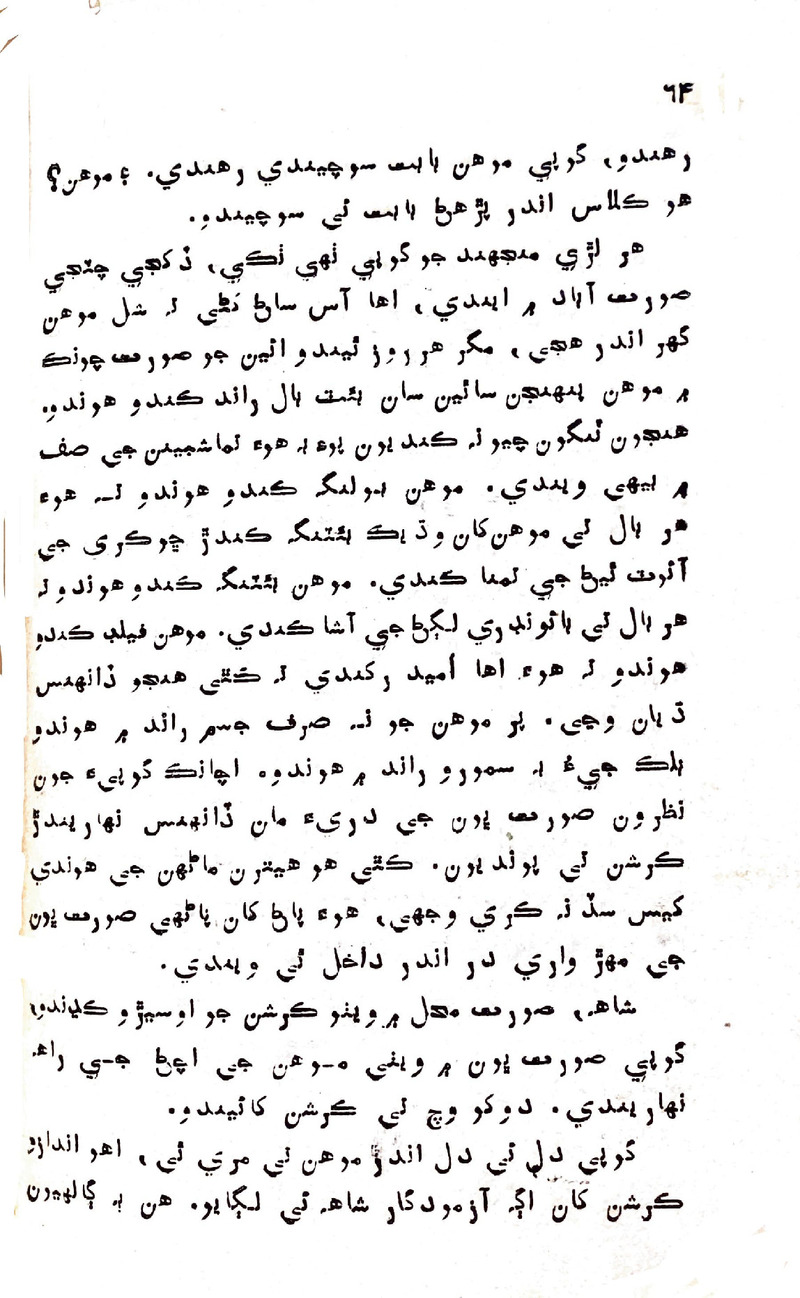 ٦۴
رهندو، گوپي موهن بابت سوچيندي رهندي. ۽ موهن؟
هو ڪلاس اندر پڙهڻ بابت ئي سوچيندو.
هر لڙي منجهند جو گوپي ٺهي ٺڪي، ڏکجي چٽجي
صورت آباد ۾ ايندي، اها آس ساڻ نڪتي ته شل موهن
گهر اندر هجي، مگر هر روز ٿيندو ائين جو صورت چونڪ
۾ موهن پنهنجن ساٿين سان بئٽ بال راند ڪندو هوندو.
هنجون ٽنگون چيو نه ڪنديون پوءِ به هوءَ تماشبينن جي صف
۾ بيهي ويندي. موهن بولنگ ڪندو هوندو ته هوءَ
هر بال تي موهن کان وڌيڪ بئٽنگ ڪندڙ ڇوڪري جي
آئوٽ ٿيڻ جي تمنا ڪندي. موهن بئٽنگ ڪندو هوندو ته
هر بال تي بائونڊري لڳڻ جي آشا ڪندي. موهن فيلڊ ڪندو
هوندو ته هوءَ اها اُميد رکندي ته ڪٿي هنجو ڏانهنس
ڌيان وڃي. پر موهن جو نه صرف جسم راند ۾ هوندو
بلڪ جيءُ به سمورو راند ۾ هوندو. اچانڪ گوپيءَ جون
نظرون صورت ڀون جي دريءَ مان ڏانهنس نهاريندڙ
ڪرشن تي پونديون. ڪٿي هو هيترن ماڻهن جي هوندي
کيس سڏ نه ڪري وجهي، هوءَ پاڻ کان پاڻهي صورت ڀون
جي مهڙ واري در اندر داخل ٿي ويندي.
شاهه، صورت محل ۾ ويٺو ڪرشن جو اوسيڙو ڪڍندو،
گوپي صورت ڀون ۾ ويٺي موهن جي اچڻ جي راهه
نهاريندي. دوکو وچ تي ڪرشن کائيندو.
گوپي دل ئي دل اندر موهن تي مري ٿي، اهو اندازو
ڪرشن کان اڳ آزمودگار شاهه ئي لڳايو. هن به ڳالهيون